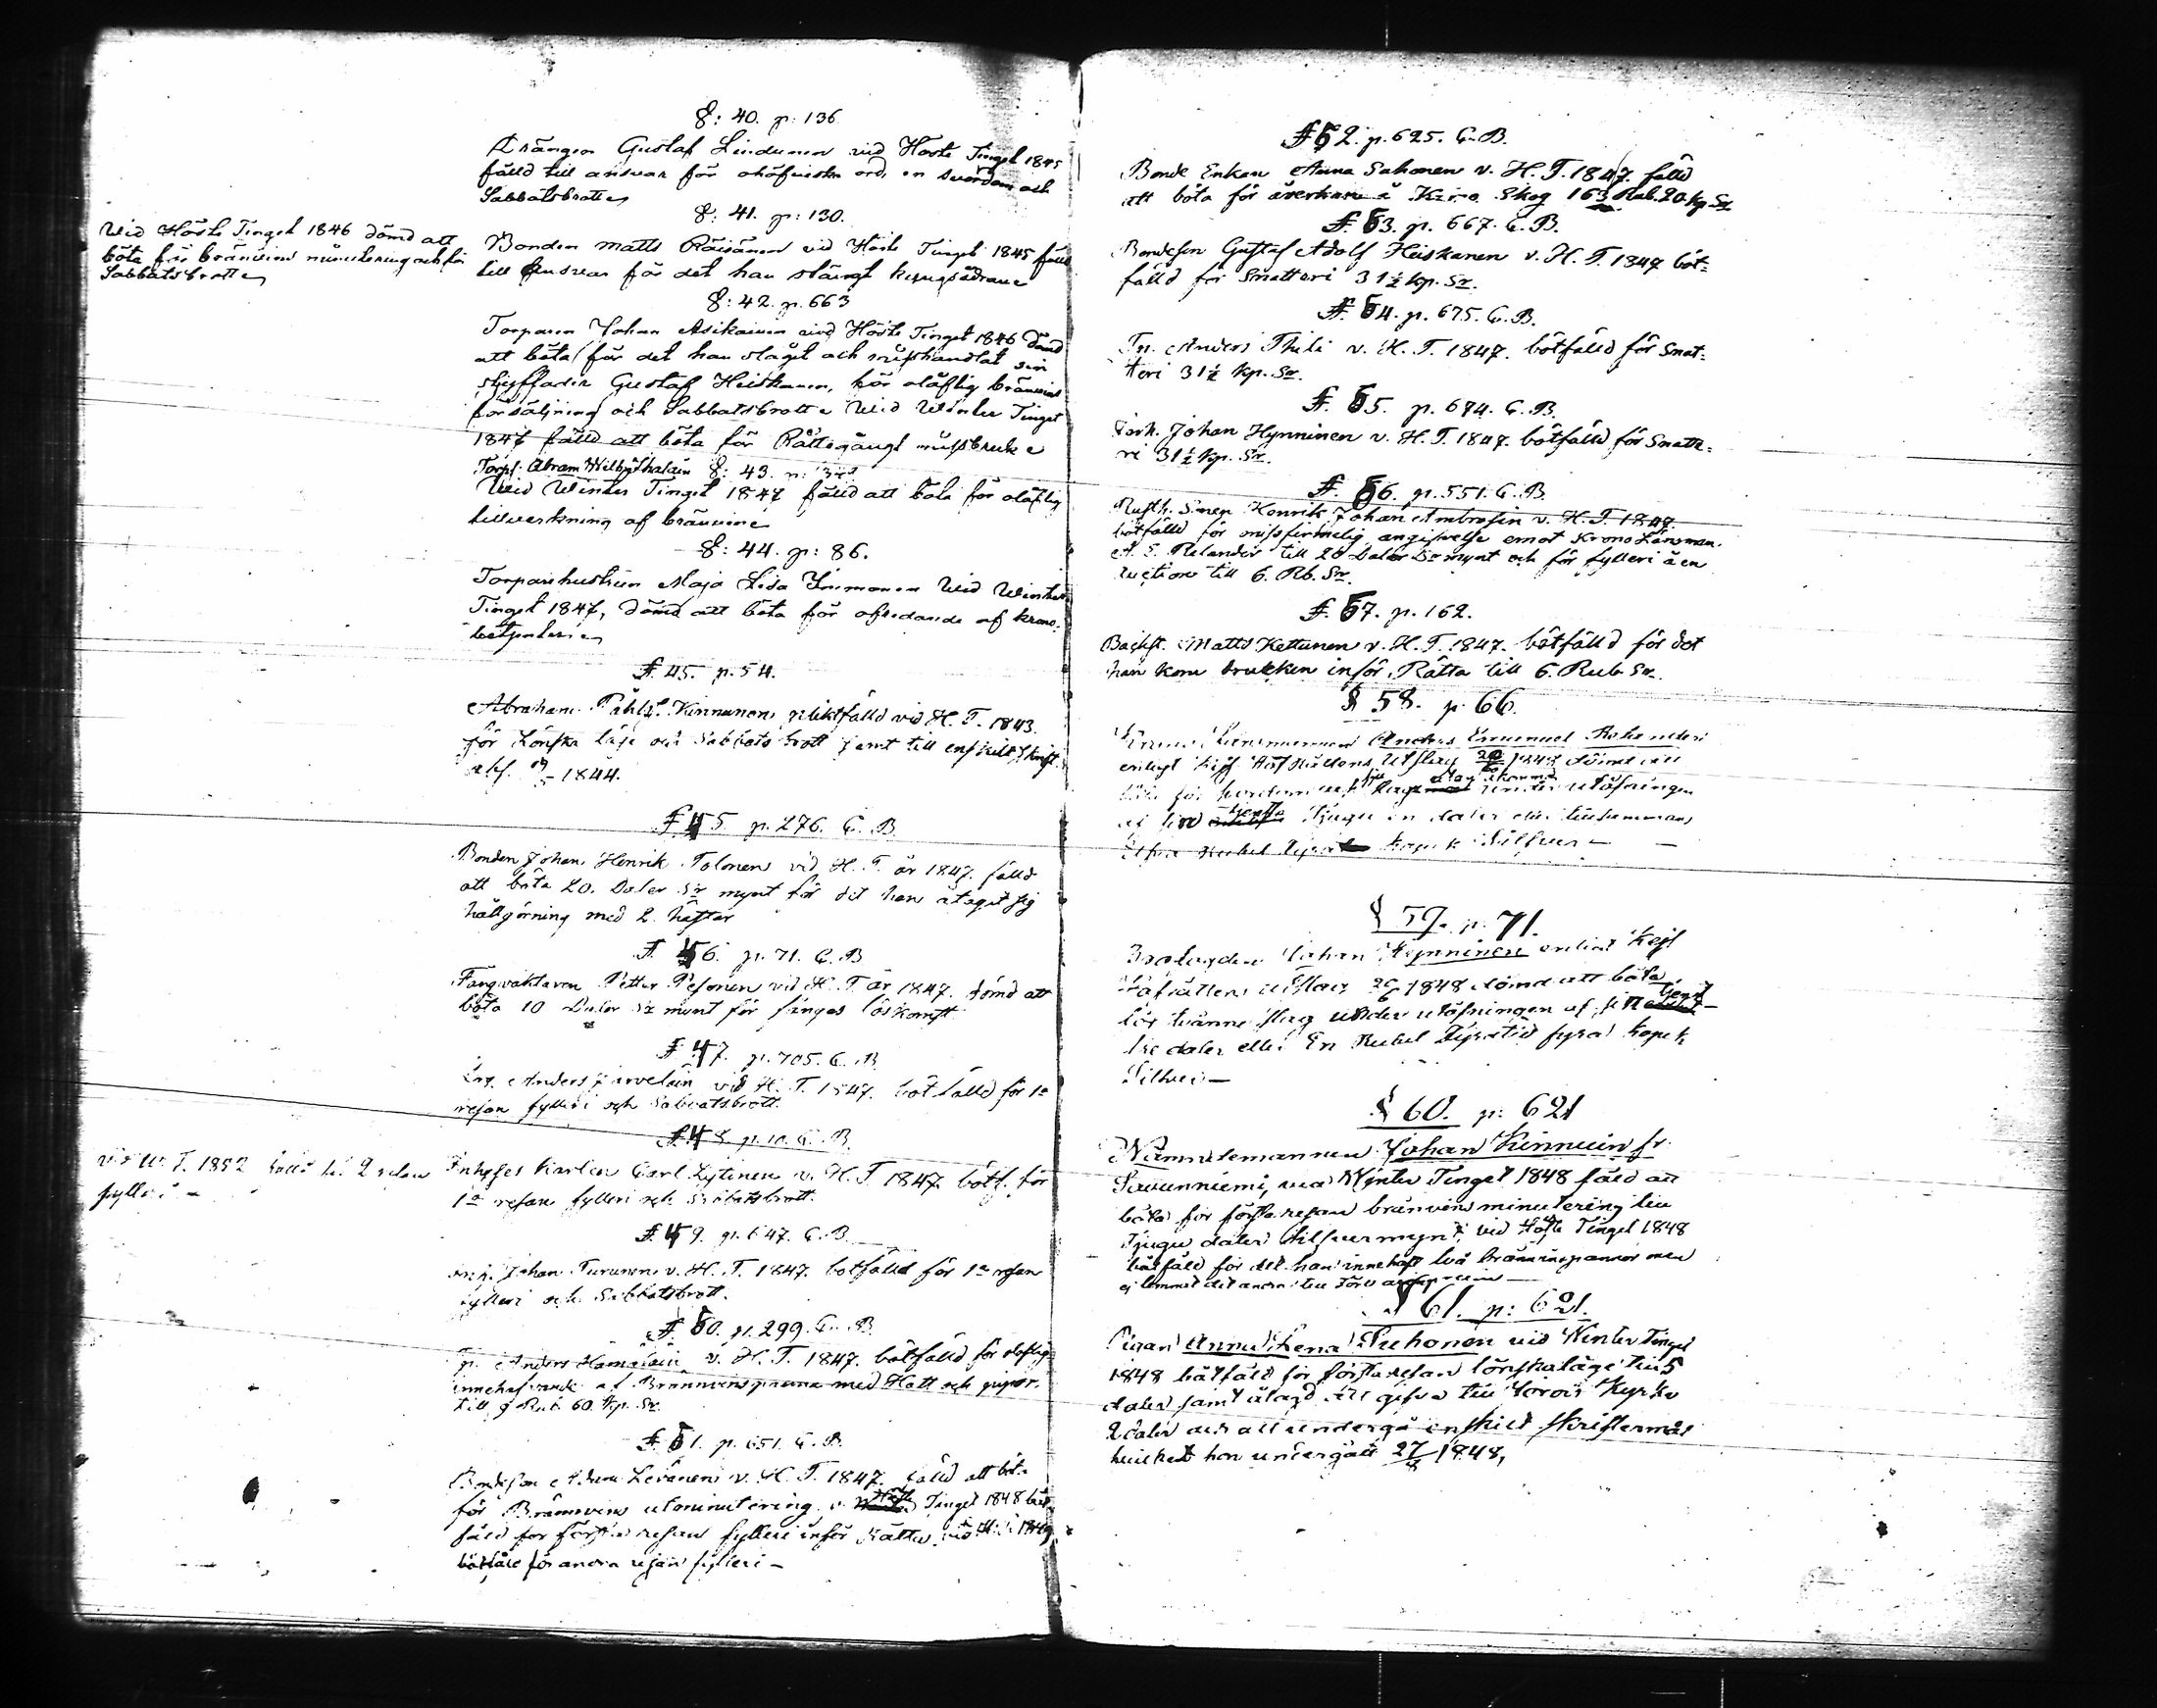 §: 40. p: 136
Drängen Gustaf Lindunen vid Höste Tinget 1845
fälld till ansvar för ohöfviska ord, en svordom och
Sabbatsbrott
§: 41. p: 130.
Wid Höste Tinget 1846 dömd att
böta för bränvins minutering och för
Sabbatsbrott
Bonden Matts Räisänen vid Höste Tinget 1845 fälld
till ansvar för det han stängt kungsådran
§: 42. p. 663
Torparen Johan Asikainen vid Höste Tinget 1846 dömd
att böta för det han slagit och misshandlat sin
styffader Gustaf Heiskanen, för olaflig bränvins
försäljning och Sabbatsbrott Wid Winter Tinget
1847 fälld att böta för Rättegångs missbruk
Torp: Abram §: 43. p:
Wid Winter Tinget 1847 fälld att böta för olaflig
tillverkning af bränvin
§: 44. p: 86.
Torparehustrun Maja Lisa Immonen Wid Winter
Tinget 1847, dömd att böta för afredande af krono
§. 45. p. 54.
Abraham Påhls. Kinnunen pliktfälld vid H. T. 1843.
för Lönska läge och Sabbats brott samt till enskilt skrift.
abs. 1844.
§ 45 p. 276. C. B.
Bonden Johan Henrik Tolonen vid H. T. år 1847. fälld
att böta 20. Daler Sr mynt för det han åtagit sig
hållgörning med 2. häster
§. 46. p. 71. C. B
Fångvaktaren Petter Pesonen vid H. T. år 1847. dömd att
böta 10 Daler Sr mynt för fånges löskomst
§ 47. p. 705. C. B.
Anders Järveläin vid H. T. 1847. bötfälld för 1a
resan fylleri och Sabbatsbrott.
§. 48. p. 10. C. B.
vid W. T. 1852 fälld till 2 resan
fylleri -
Inhyses Karlen Carl Lytinen v. H. T 1847. bötf. för
1a resan fylleri och Sabbatsbrott.
§. 49. p. 647. C. B.
Johan Turunen v. H. T. 1847. botfälld för 1a resan
fylleri och Sabbatsbrott.
§. 50. p. 299. C. B.
Tp. Anders Hämäläin v. H. T. 1847. bötfälld för olaflig
innehafvande af Brännvinspanna med Hatt och pipor.
till 9 Rub. 60. Kp. Sr.
§. 51. p. 651. C. B.
Bondeson Adam Levänen v. H. T. 1847. fälld att böta
för Brännvins utminutering. v. Höste Tinget 1848 böt-
fäld för första resan fylleri inför Rätta, vid H. T. 1849
bötfäld för andra resan fylleri -
§ 52. p. 625. C. B.
Bonde Enkan Anna Sahonen v. H. T. 1847. fälld
att böta för åverkan å Krono Skog 163 Rub. 20 kp. Sr
§. 53. p. 667. C. B.
Bondeson Gustaf Adolf Heiskanen v. H. T. 1847 böt-
fälld för Snatteri 31½ Kp. Sr.
§. 54. p. 675. C. B.
Tn. Anders Thili v. H. T. 1847. bötfälld för Snat-
teri 31½ Kp. Sr.
§. 55. p. 674. C. B.
Johan Hynninen v. H. T. 1847. bötfälld för Snatte-
ri 31½ Kp. Sr.
§. 56. p. 551. C. B.
Rusth. Sonen Henrik Johan Ambrosin v. H. T. 1847.
bötfälld för missfirmelig angifvelse emot Krono Länsman.
A. E. Relander till 20 Daler Sr mynt och för fylleri å en
auction till 6. Rb. Sr.
§. 57. p. 162.
Backst. Matts Kettunen v. H. T. 1847. bötfälld för det
han kom drucken inför Rätta till 6. Rub. Sr.
§ 58. p. 66.
Krono Länsmannen Anders Emanuel Relander
enligt Kejs. Hof Rättens Utslag 1848 dömd att
under utöfningen
af sin tjenst Tjugu en daler eller tillsammans
kopek Silfver -
§ 59. p. 71.
Johan Hynninen enligt Kejs
Hofrättens utslag 1848 dömd att böta
för tvänne slag under utöfningen af sin tjenst -
tre daler eller En Rubel Fyratio fyra kopek
Silfver -
§ 60. p: 621
Nämndemannen Johan Kinnuin fr.
Savunniemi, vid Winter Tinget 1848 fäld att
böta för första resan bränvins minutering till
Tjugu daler Silfvermynt, vid Höste Tinget 1848
bötfäld för det han innehaft två bränvinspannor men
ej lemnat det andra till
§ 61. p: 621.
Pigan Anna Lena Puhonen vid Winter Tinget
1848 bötfäld för första resan lönskaläge till 5
daler samt ålagd att gifva till Jorois Kyrka
2 daler och att undergå enskilt skriftermål
hvilket hon undergått 27/8 1848,